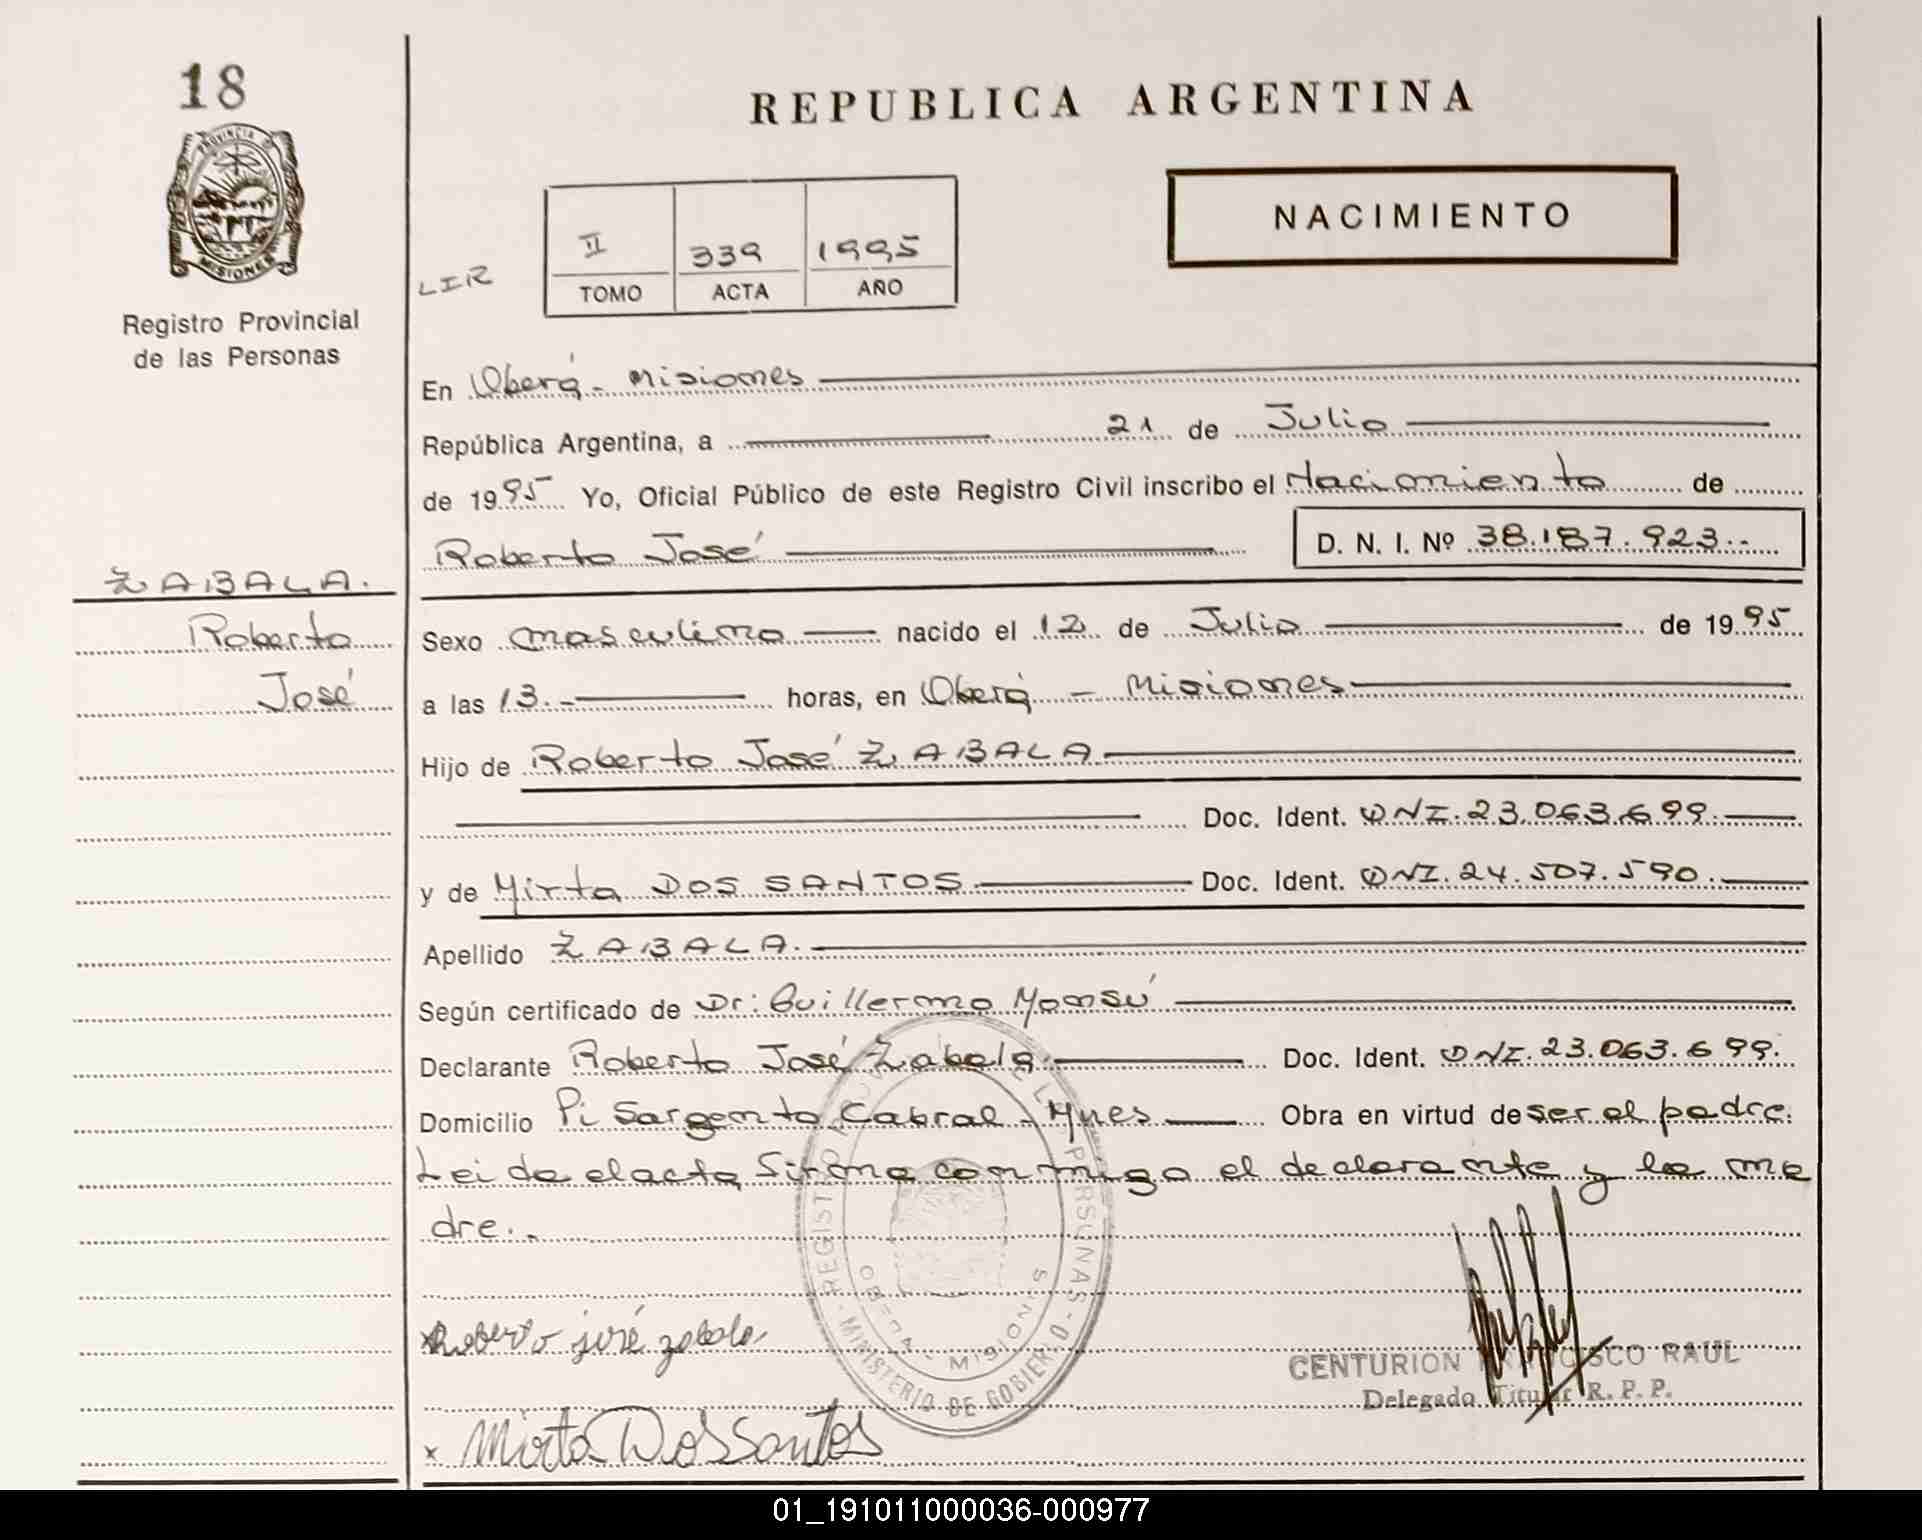 18
PROVINCIA DE
MISIONES
Registro Provincial
de las Personas
REPUBLICA ARGENTINA
NACIMIENTO
LIR
II 339 1995
TOMO ACTA AÑO
En Oberá - Misiones
República Argentina, a 21 de Julio
de 1995 Yo, Oficial Público de este Registro Civil inscribo el Nacimiento de
Roberto José D. N. I. Nº 38.187.923.-
ZABALA.
Roberto
José
Sexo masculino nacido el 12 de Julio de 1995
a las 13.- horas, en Oberá - Misiones
Hijo de Roberto José ZABALA
Doc. Ident. DNI. 23.063.699.
y de Mirta DOS SANTOS Doc. Ident. DNI. 24.507.590.
Apellido ZABALA.
Según certificado de Dr: Guillermo Monsú
Declarante Roberto José Zabala. Doc. Ident. DNI. 23.063.699.
Domicilio Pi Sargento Cabral - Mnes Obra en virtud de ser el padre.
Leida el acta firma conmigo el declarante y la ma
dre..
REGISTRO PROV DE L PERSONAS - MINISTERIO DE GOBIERNO
OBERA - MISIONES
x Roberto josé zabala
CENTURION FRANCISCO RAUL
Delegado Titular R. P. P.
x Mirta Dos Santos
01_191011000036-000977